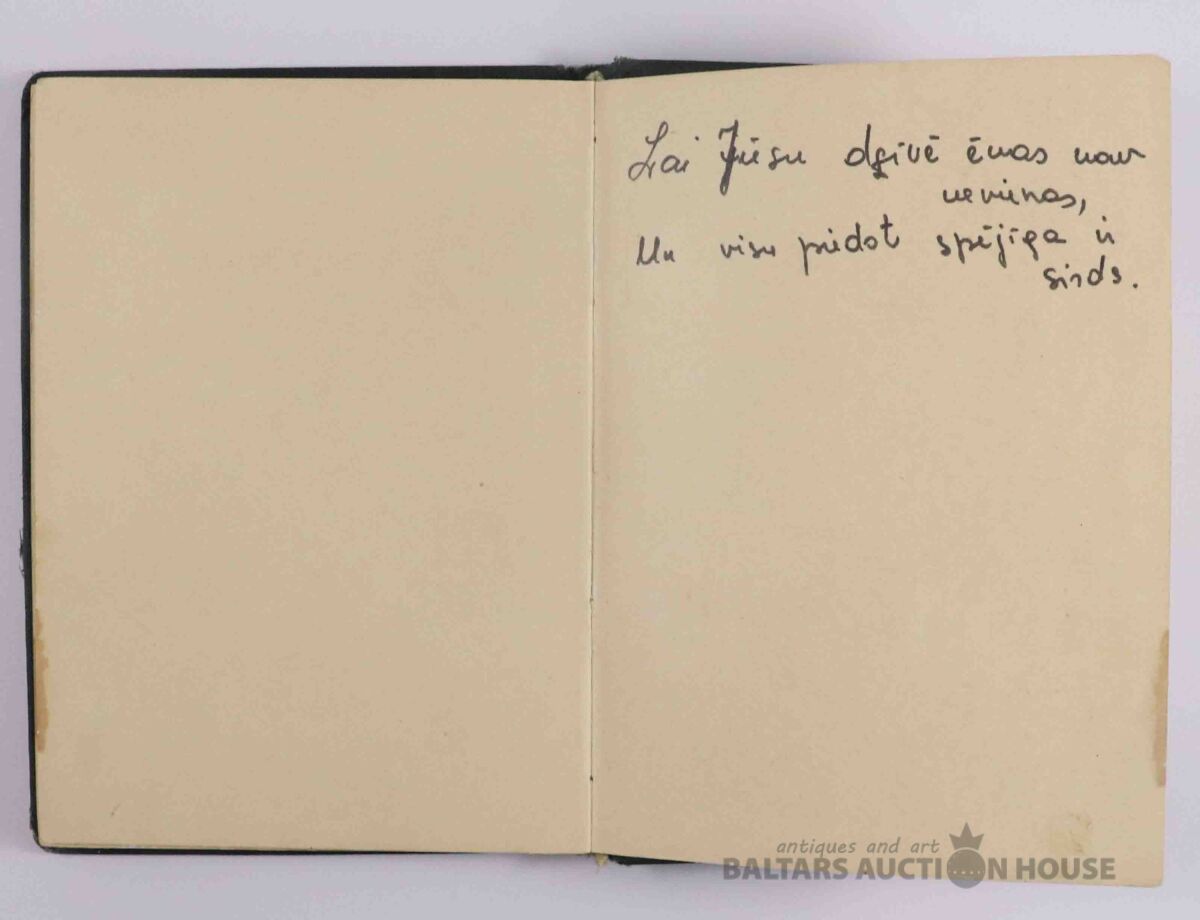 Lai Jūsu dzīvē ēnas nav
nevienas,
Un visu piedot spējīga ir
sirds.
antiques and art
BALTARS AUCTION HOUSE